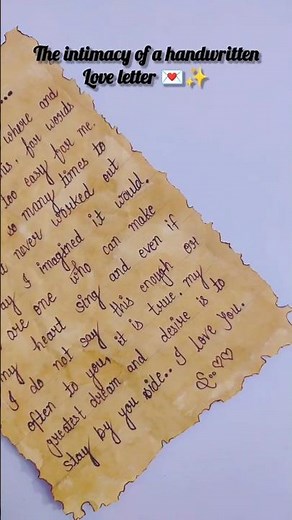 The intimacy of a handwritten
Love letter 💌✨
...
where and
for words
too easy for me.
so many times to
never worked out
I imagined it would.
are one who can make
my heart sing and even if
I do not say this enough or
often to you, it is true. my
greatest dream and desire is to
stay by you side.. I love you.
S..♡♡